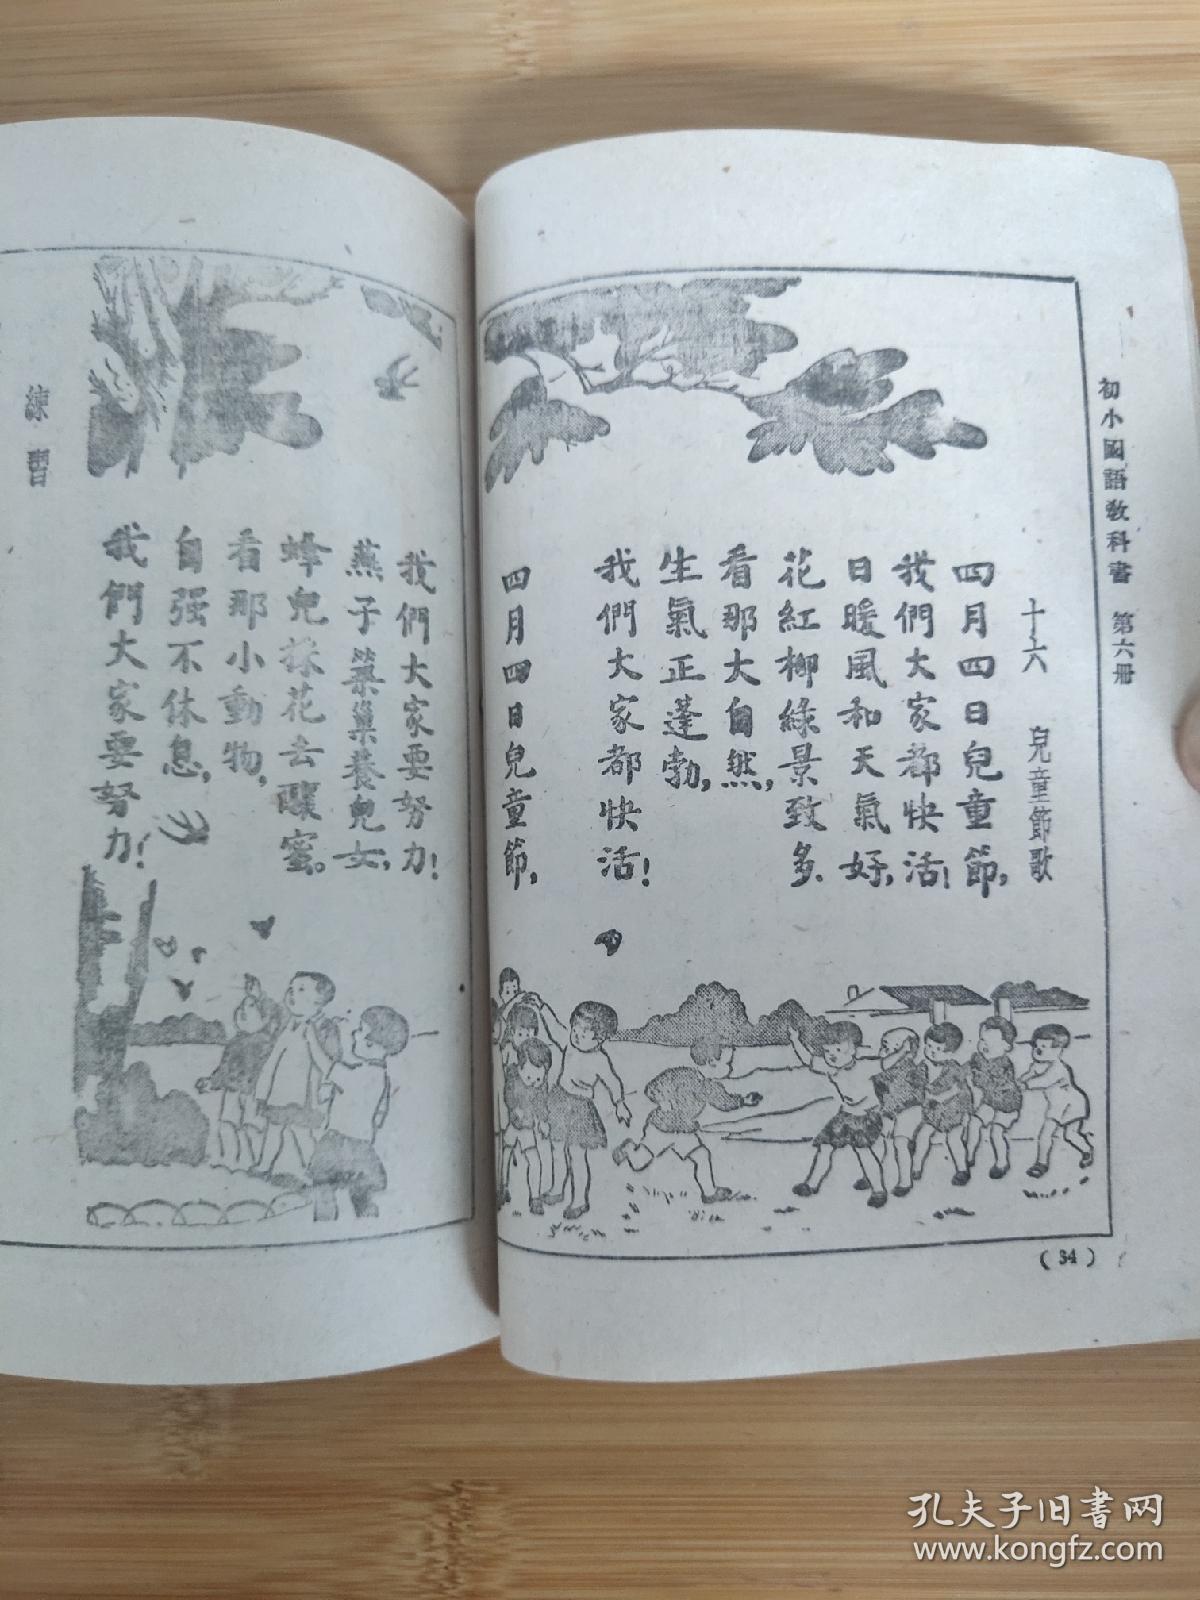 初小國語教科書 第六册
十六 兒童節歌
四月四日兒童節，
我們大家都快活！
日暖風和天氣好，
花紅柳綠景致多、
看那大自然，
生氣正蓬勃，
我們大家都快活！
四月四日兒童節，
(34)
我們大家要努力！
燕子築巢養兒女，
蜂兒採花去釀蜜。
看那小動物，
自强不休息，
我們大家要努力！
練習
孔夫子旧书网
www.kongfz.com